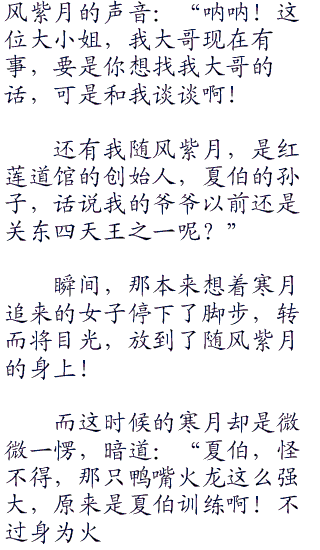 风紫月的声音：“呐呐！这
位大小姐，我大哥现在有
事，要是你想找我大哥的
话，可是和我谈谈啊！
还有我随风紫月，是红
莲道馆的创始人，夏伯的孙
子，话说我的爷爷以前还是
关东四天王之一呢？”
瞬间，那本来想着寒月
追来的女子停下了脚步，转
而将目光，放到了随风紫月
的身上！
而这时候的寒月却是微
微一愣，暗道：“夏伯，怪
不得，那只鸭嘴火龙这么强
大，原来是夏伯训练啊！不
过身为火